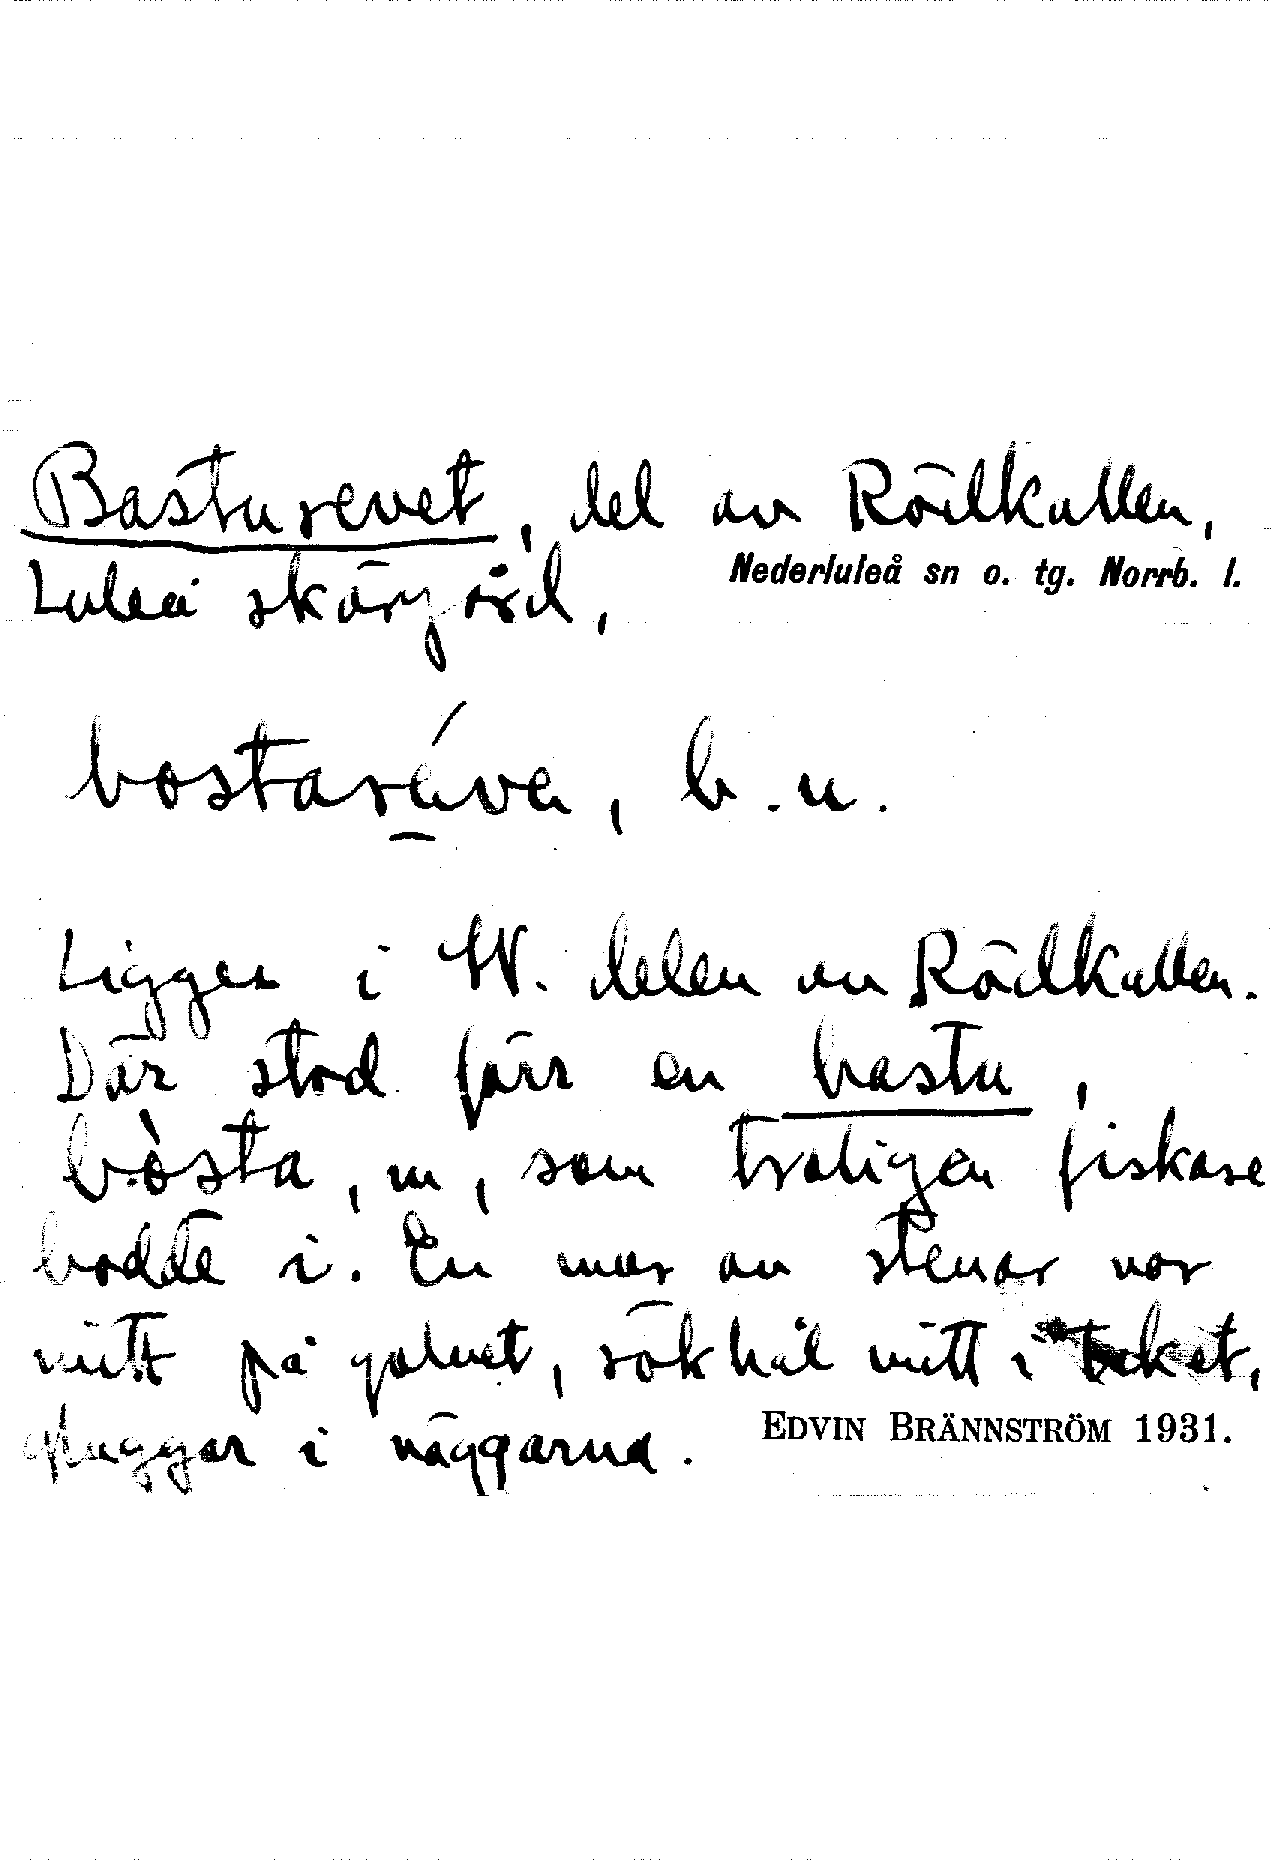 Basturevet, del av Rödkallen,
Luleå skärgård, Nederluleå sn o. tg. Norrb. l.
bostaréva, b. u.
Ligger i W. delen av Rödkallen.
Där stod förr en bastu,
bòsta, m, som troligen fiskare
bodde i. En mur av stenar var
mitt på golvet, rökhål mitt i taket,
gluggar i väggarna. EDVIN BRÄNNSTRÖM 1931.